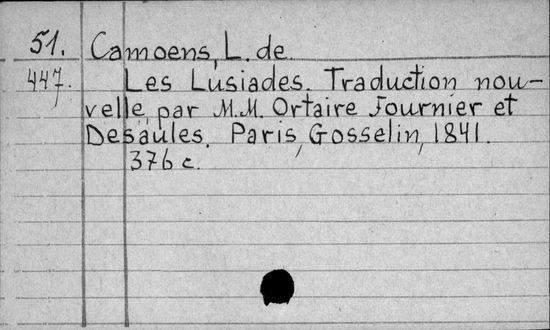 51. Camoens, L. de.
447. Les Lusiades. Traduction nou-
velle par M.M. Ortaire Fournier et
Desaules. Paris, Gosselin, 1841.
376 c.